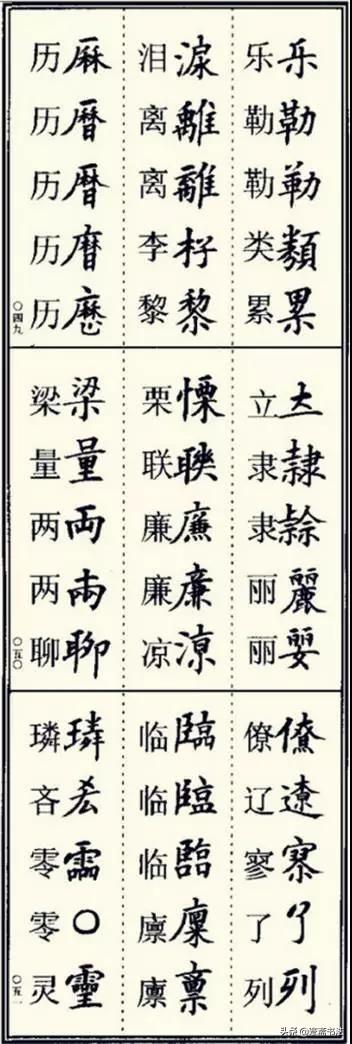 乐乐
勒勒
勒勒
类類
累累
泪淚
离離
离離
李杍
黎黎
历厤
历曆
历曆
历
历
〇四九
立
隶隸
隶
丽麗
丽
栗慄
联聨
廉亷
廉廉
凉涼
梁梁
量量
两両
两兩
聊聊
〇五〇
僚僚
辽遼
寥
了了
列列
临臨
临臨
临臨
廪廩
廪稟
璘璘
吝
零霝
零〇
灵靈
〇五一
头条
书法